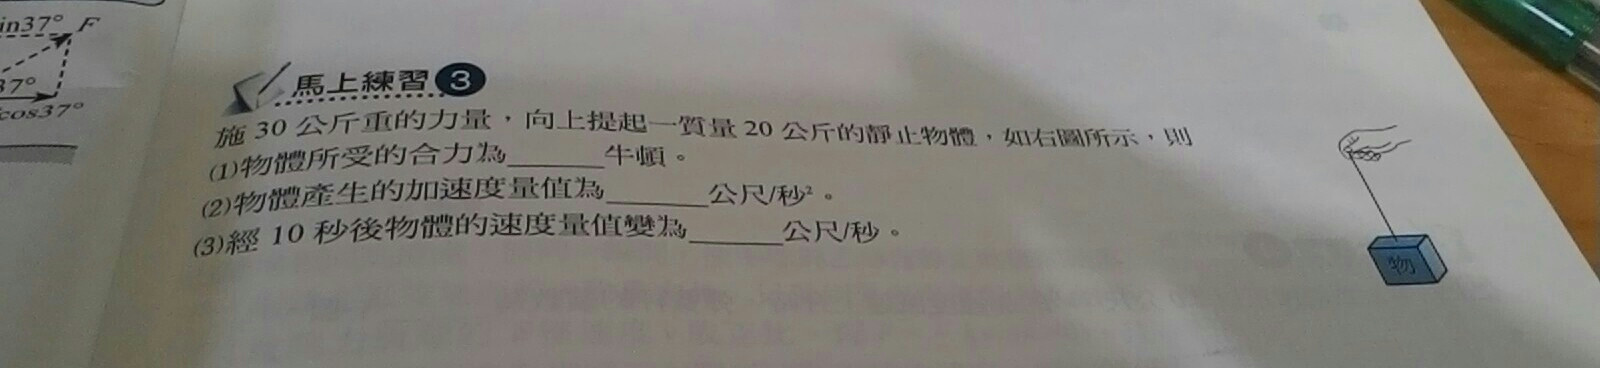 in37° F
37°
cos37°
馬上練習3
施 30 公斤重的力量，向上提起一質量 20 公斤的靜止物體，如右圖所示，則
(1)物體所受的合力為______牛頓。
(2)物體產生的加速度量值為______公尺/秒²。
(3)經 10 秒後物體的速度量值變為______公尺/秒。
物